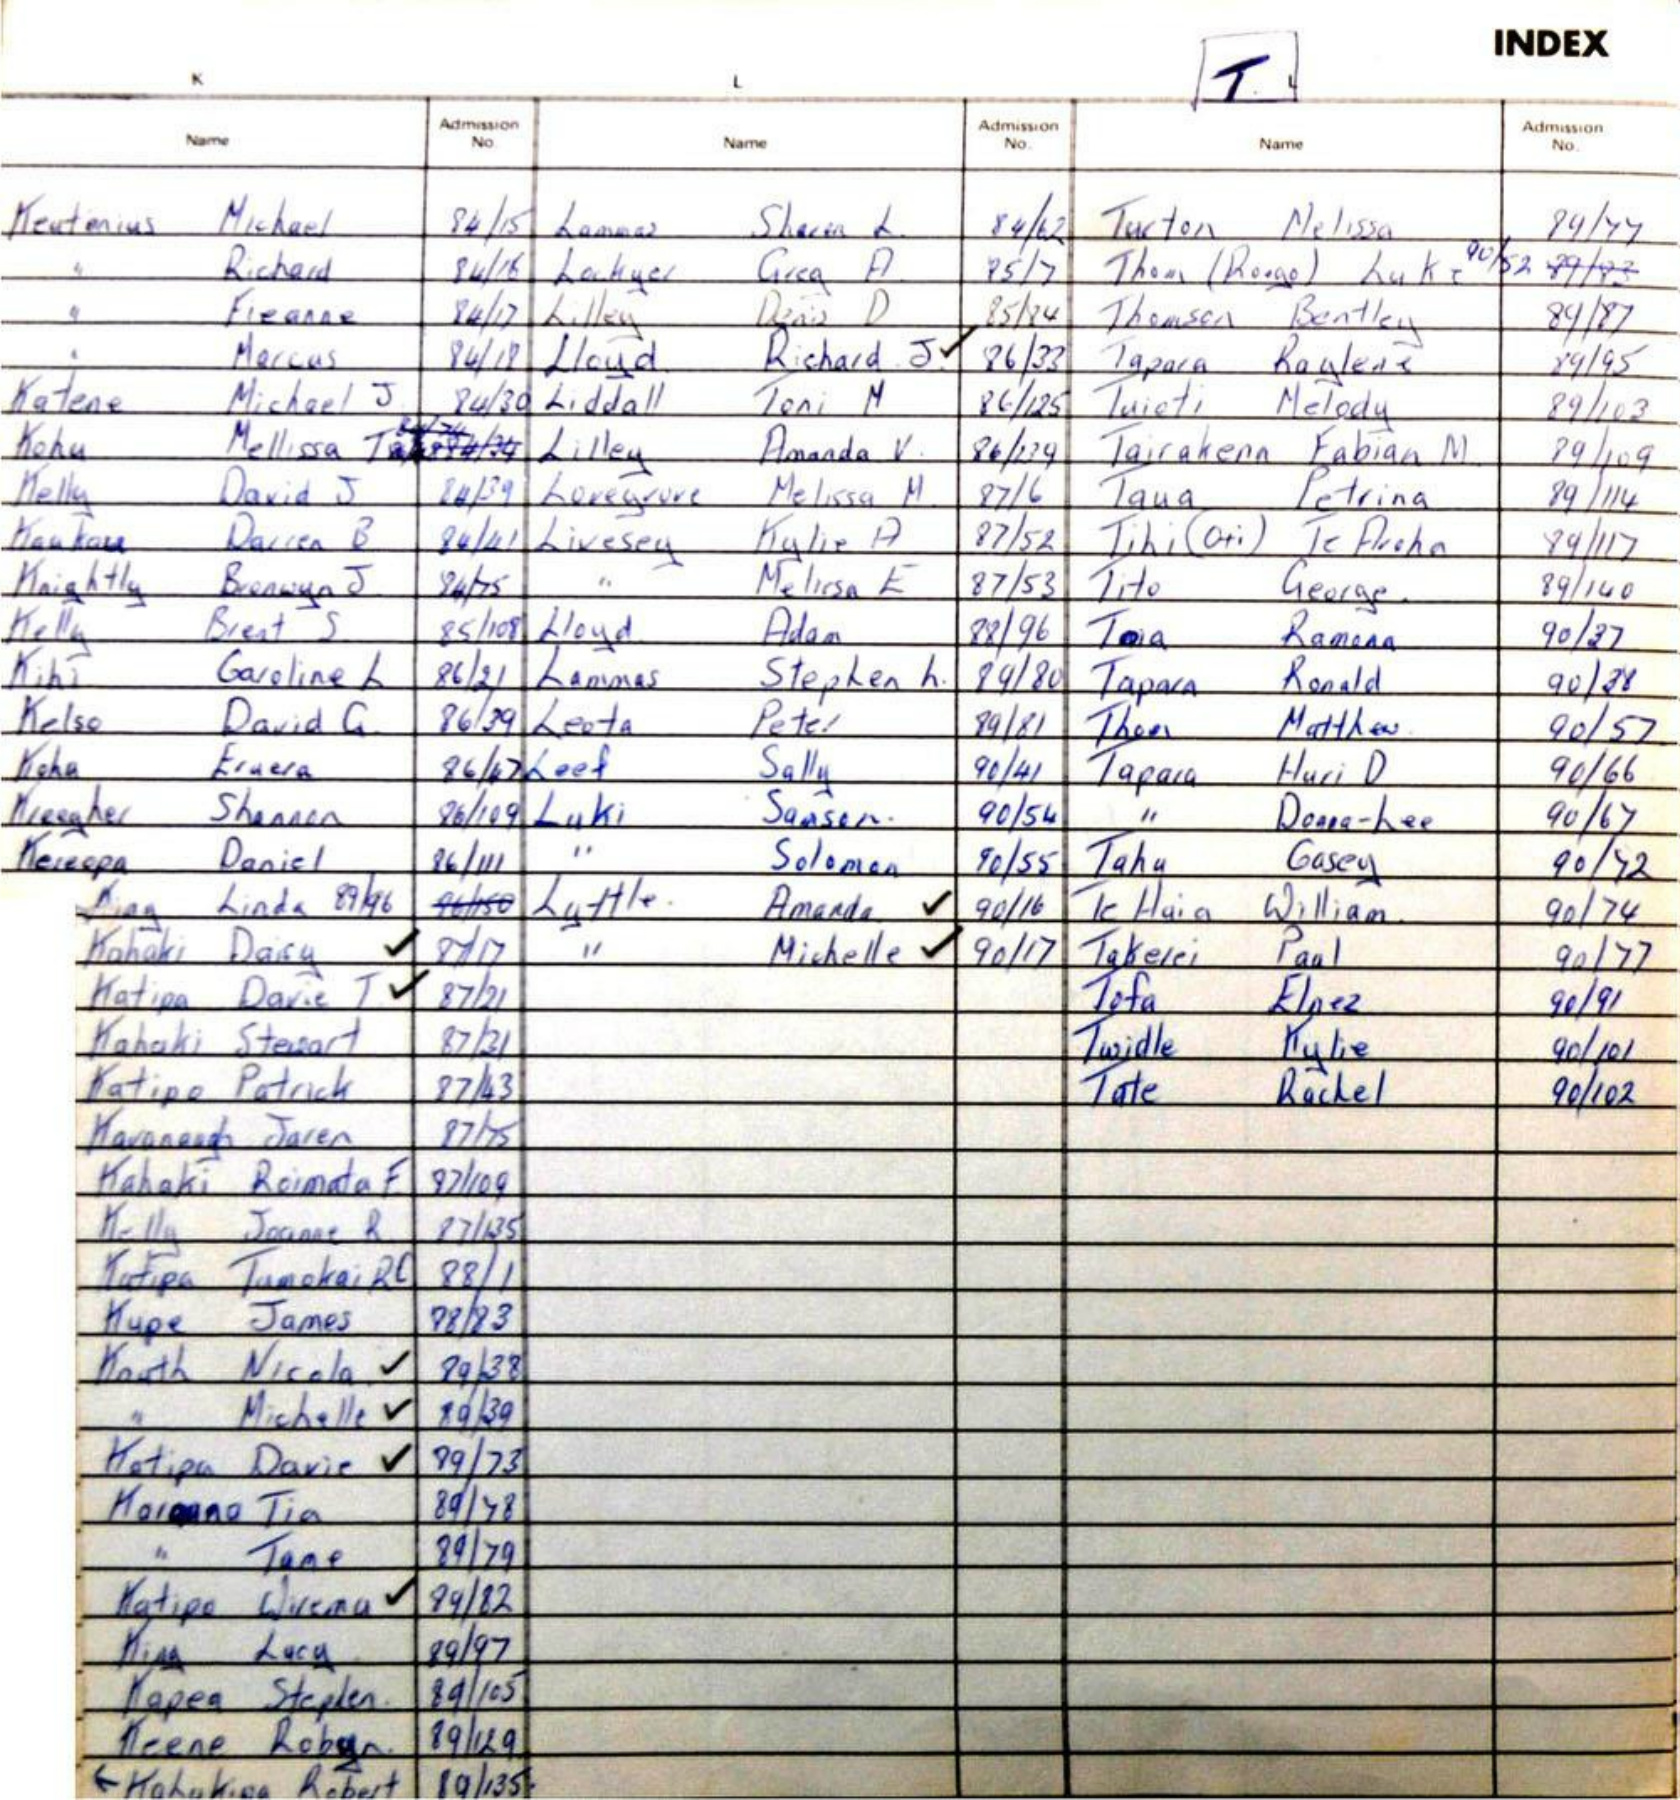 INDEX
K L T. L
Name Admission No. Name Admission No. Name Admission No.
Michael 84/15 Lammas Sharen L. 84/62 Turton Melissa 89/77
" Richard 84/16 Lockyer Greg A 85/7 Thom (Rongo) Luke 90/52
" Fleanne 84/17 Lilley D 85/84 Thomson Bentley 89/87
" Marcus 84/18 Lloyd Richard J. ✓ 86/33 Tapara Raylene 89/95
Katene Michael J. 84/30 Liddall Toni M 86/125 Tuioti Melody 89/103
Kohu Mellissa Lilley Amanda V. 86/139 Fabian M. 89/109
Kelly David J 84/39 Lovegrove Melissa M. 87/6 Taua Petrina 89/114
Darren B 84/41 Livesey Kylie A 87/52 Tihi (Ori) Te Aroha 89/117
Knightly Bronwyn J 84/75 " Melissa E 87/53 Tito George. 89/140
Kelly Brent S. 85/108 Lloyd Adam 88/96 Ramona 90/37
Kihi Caroline L 86/21 Lammas Stephen L. 89/80 Tapara Ronald 90/38
Kelso David G. 86/39 Leota Peter 89/81 Thom Matthew 90/57
Koha Eruera 86/47 Leef Sally 90/41 Tapara Huri D 90/66
Shannon 86/109 Luki Samson. 90/54 " Donna-Lee 90/67
Kereopa Daniel 86/111 " Soloman 90/55 Tahu Casey 90/72
King Linda 89/96 86/150 Lyttle. Amanda ✓ 90/16 Te Huia William. 90/74
Kahaki Daisy ✓ 87/17 " Michelle ✓ 90/17 Takerei Paul 90/77
Katipa Davie T ✓ 87/21 Tofa Elnez 90/91
Kahaki Stewart 87/31 Twidle Kylie 90/101
Katipa Patrick 87/43 Tate Rachel 90/102
Kavanaugh Jaren 87/75
Kahaki Roimata F. 87/109
Kelly Joanne R 87/135
Katipa Tumokai RC 88/1
Kupe James 88/83
Knuth Nicola ✓ 89/38
" Michelle ✓ 89/39
Katipa Davie ✓ 89/73
Tia 89/78
" Tame 89/79
Katipa Wiremu ✓ 89/82
King Lucy 89/97
Kapea Stephen. 89/105
Keene Robyn. 89/129
← Robert 89/135